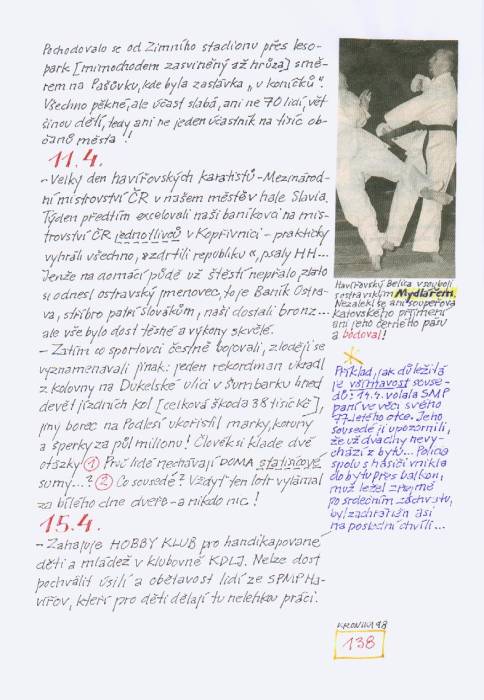 Pochodovalo se od Zimního stadionu přes leso-
park [mimochodem zasviněný až hrůza] smě-
rem na Pašůvku, kde byla zastávka „u koníčků“.
Všechno pěkné, ale účast slabá, ani ne 70 lidí, vět-
šinou dětí, tedy ani ne jeden účastník na tisíc ob-
čanů města!
11.4.
- Velký den havířovských karatistů - Mezinárod-
ní mistrovství ČR v našem městě v hale Slavia.
Týden předtím excelovali naši baníkovci na mis-
trovství ČR jednotlivců v Kopřivnici - prakticky
vyhráli všechno, »zdrtili republiku«, psaly HH...
Jenže na domácí půdě už štěstí nepřálo, zlato
si odnesl ostravský jmenovec, to je Baník Ostra-
va, stříbro patří Slovákům, naši dostali bronz...
ale vše bylo dost těsné a výkony skvělé.
- Zatím co sportovci čestně bojovali, zloději se
vyznamenávali jinak: jeden rekordman ukradl
z kolovny na Dukelské ulici v Šumbarku hned
devět jízdních kol [celková škoda 38 tisíc Kč],
jiný borec na Podlesí ukořistil marky, koruny
a šperky za půl milionu! Člověk si klade dvě
otázky ① Proč lidé nechávají DOMA statisícové
sumy...? ② Co sousedé? Vždyť ten lotr vylámal
za bílého dne dveře - a nikdo nic!
15.4.
- Zahajuje HOBBY KLUB pro handikapované
děti a mládež v klubovně KDLJ. Nelze dost
pochválit úsilí a obětavost lidí ze SPMP Ha-
vířov, kteří pro děti dělají tu nelehkou práci.
Havířovský Belica v souboji
s ostravským Mydlářem.
Nezalekl se ani soupeřova
katovského příjmení
ani jeho černého pásu
a bodoval!
Příklad, jak důležitá
je všímavost souse-
dů: 14.4. volala SMP
paní ve věci svého
77letého otce. Jeho
sousedé ji upozornili,
že už dva dny nevy-
chází z bytu... Policie
spolu s hasiči vnikla
do bytu přes balkon,
muž ležel zřejmě
po srdečním záchvatu,
byl zachráněn asi
na poslední chvíli...
KRONIKA 98
138